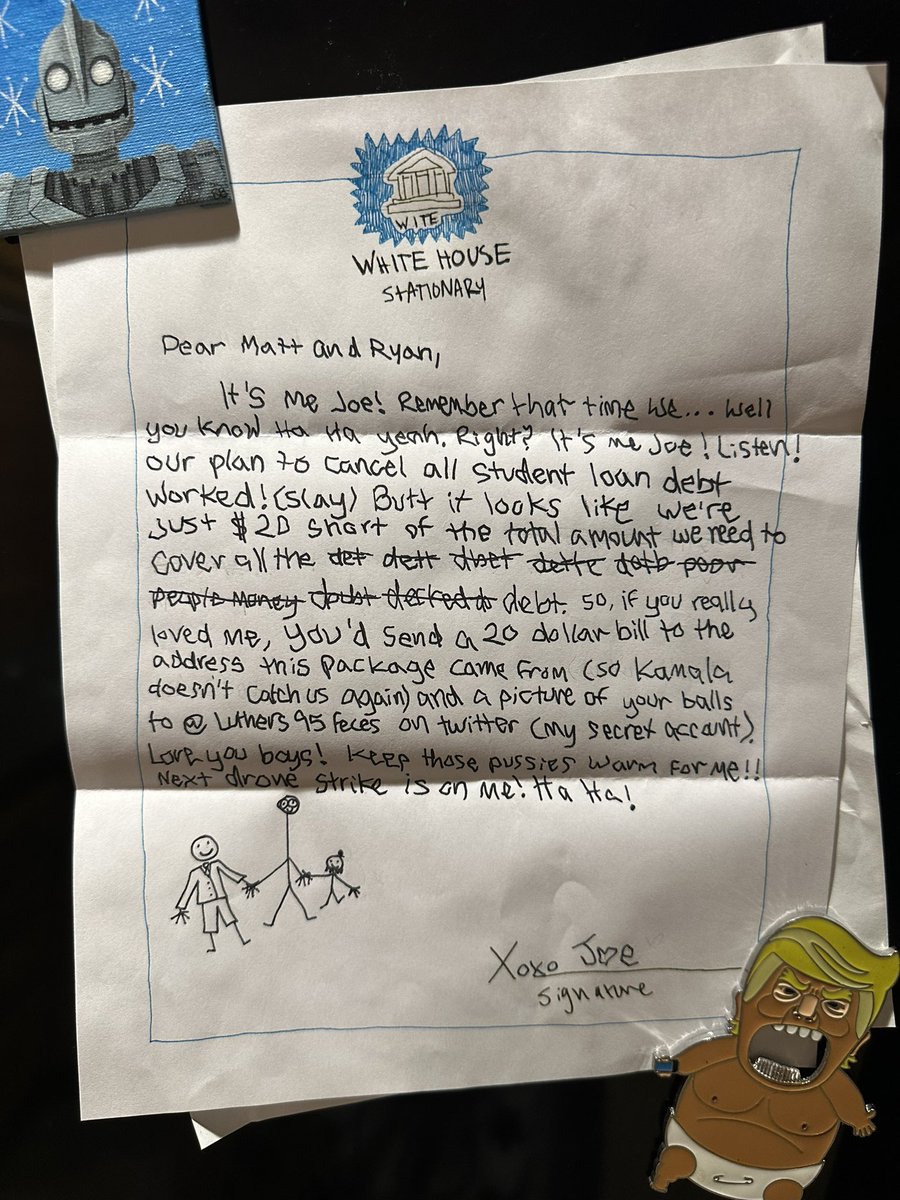 WITE
WHITE HOUSE
STATIONARY
Dear Matt and Ryan,
It's me Joe! Remember that time we... well
you know Ha Ha yeah. Right? It's me Joe! Listen!
our plan to cancel all student loan debt
worked! (slay) Butt it looks like we're
just $20 short of the total amount we need to
cover all the det dett dbet dette detb poor
people money doubt decked a debt. So, if you really
loved me, you'd send a 20 dollar bill to the
address this package came from (so Kamala
doesn't catch us again) and a picture of your balls
to @ Luthers95feces on twitter (my secret account).
Love you boys! Keep those pussies warm for me!!
Next drone strike is on me! Ha Ha!
Xoxo Joe
signature